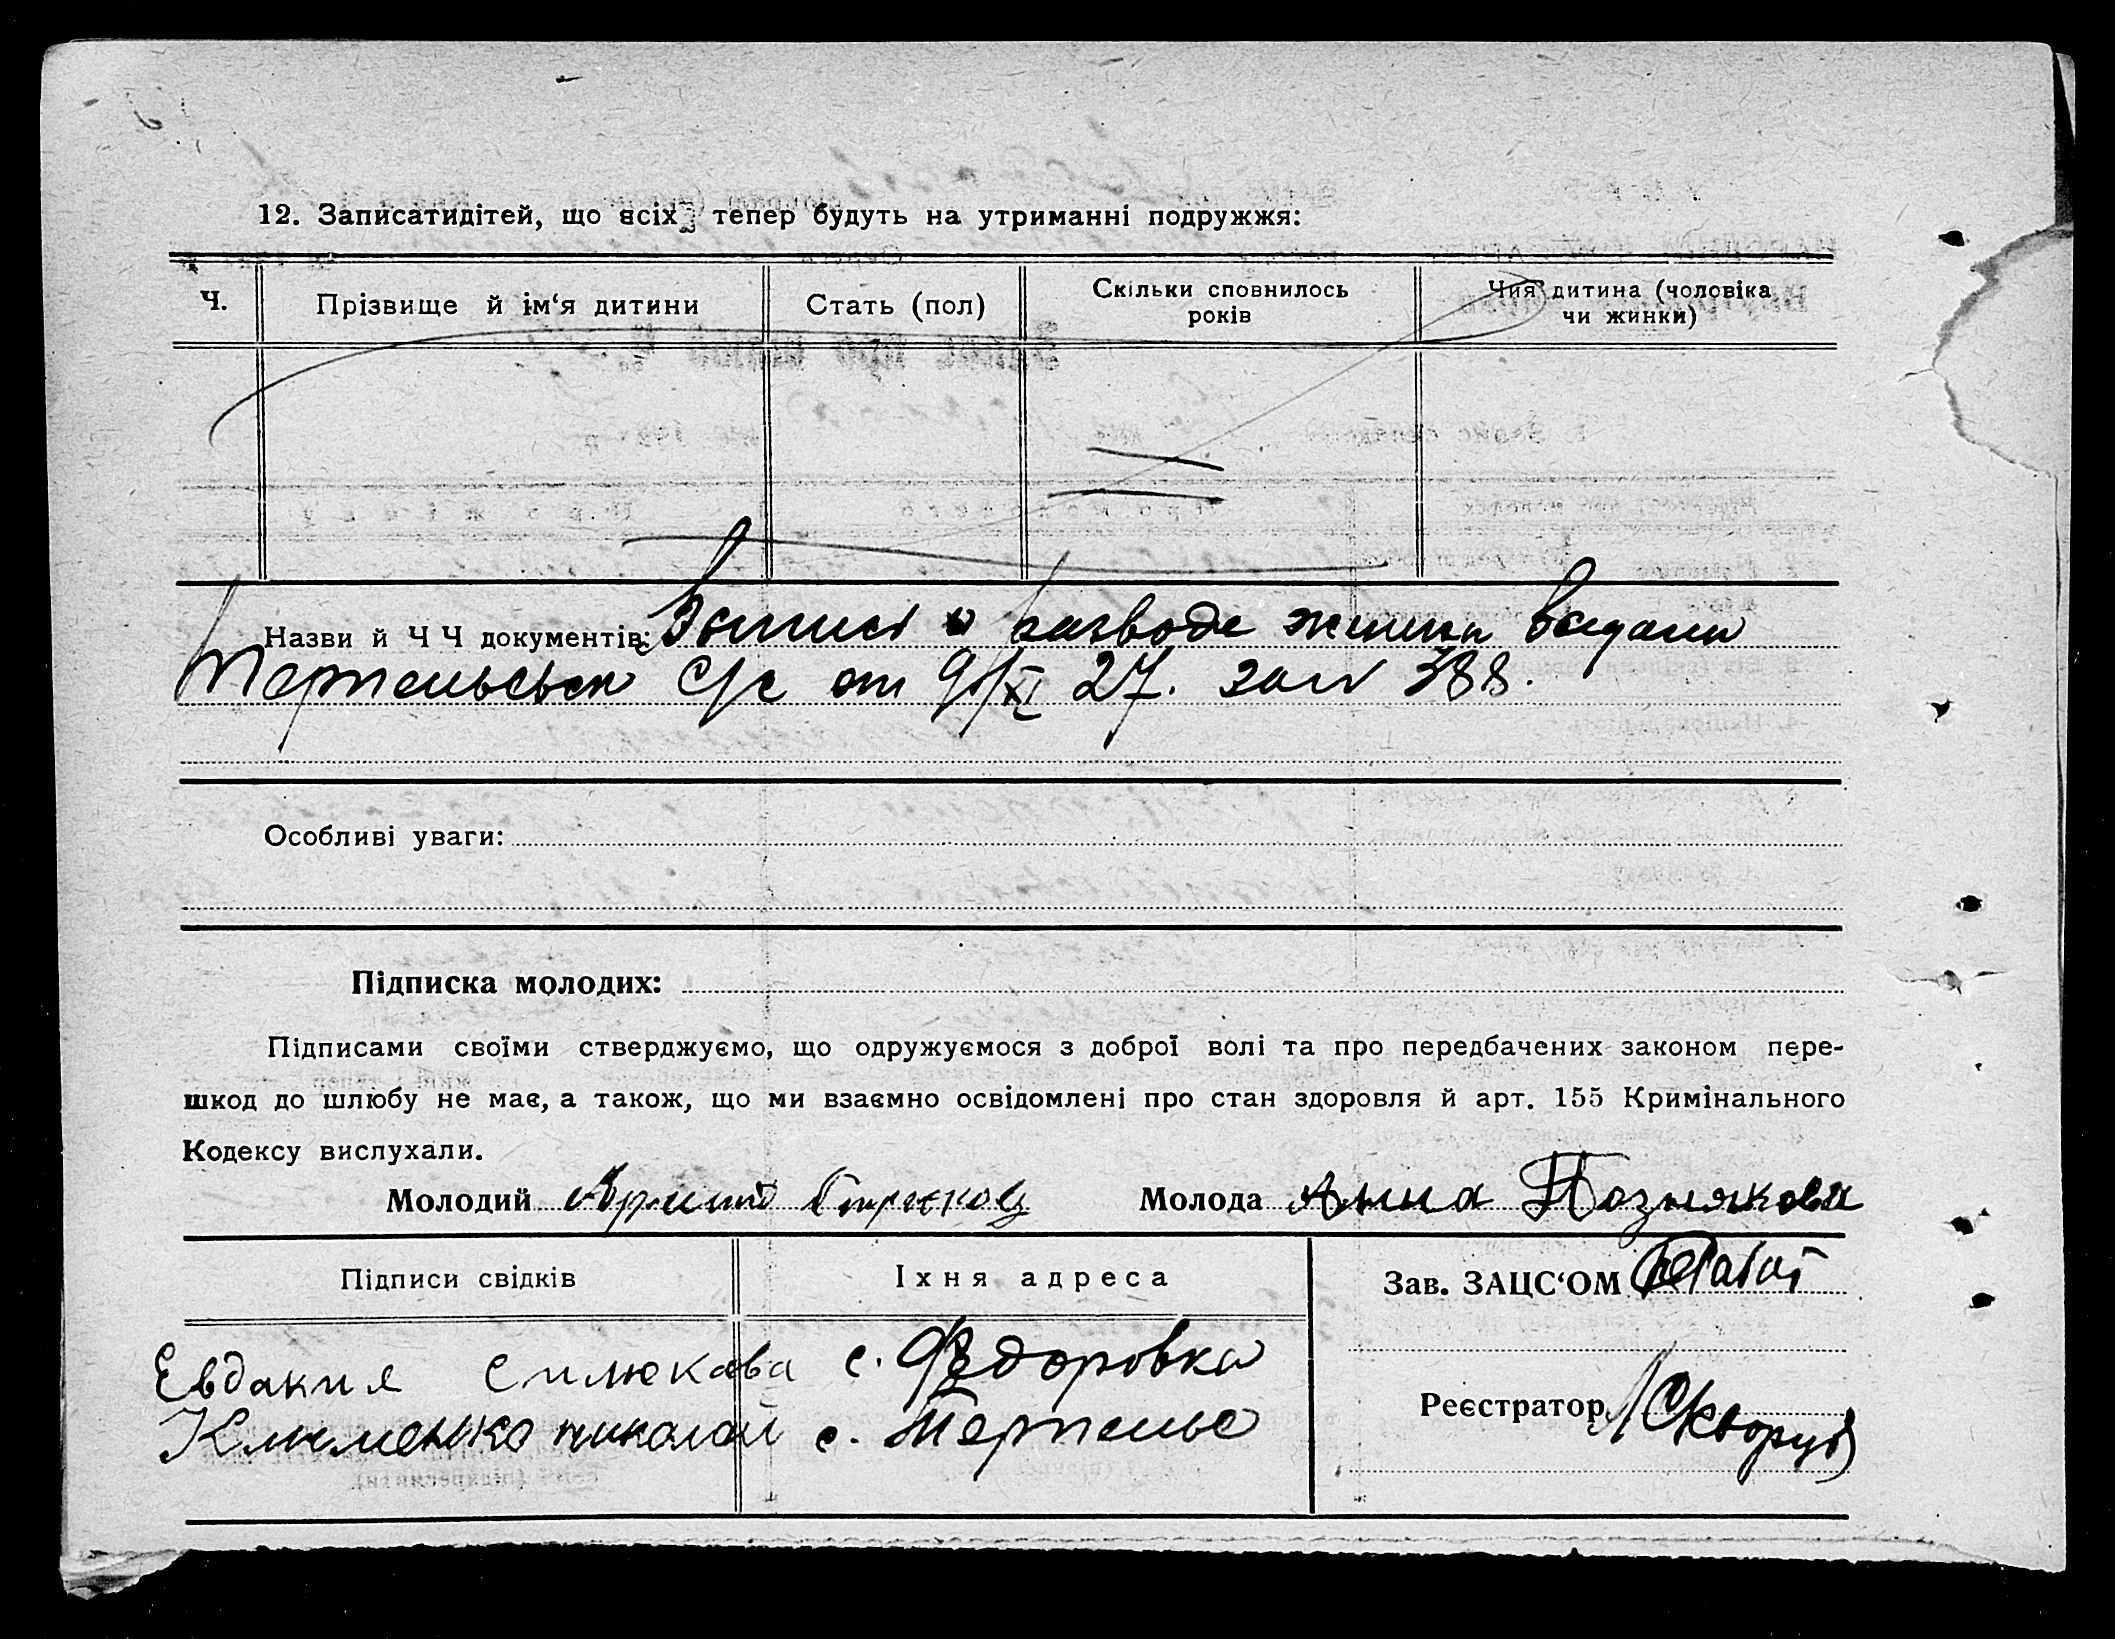 12. Записатидітей, що всіх тепер будуть на утриманні подружжя:
Ч. Прізвище й ім‘я дитини Стать (пол) Скільки сповнилось років Чия дитина (чоловіка чи жинки)
Назви й Ч Ч документів: о разводе жинки
с/с от 9/XI 27. за № 388.
Особливі уваги:
Підписка молодих:
Підписами своїми стверджуємо, що одружуємося з доброї волі та про передбачених законом пере-
шкод до шлюбу не має, а також, що ми взаємно освідомлені про стан здоровля й арт. 155 Кримінального
Кодексу вислухали.
Молодий Молода Анна Познякова
Підписи свідків Їхня адреса Зав. ЗАЦС‘ОМ
Евдакия силюкава с. Федоровка
Реєстратор
Клименко николай с. Терпенье